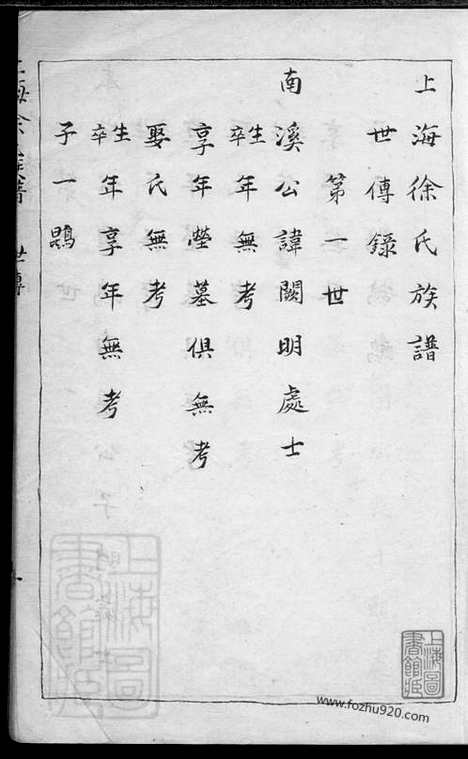 上海徐氏族譜
世傳錄
第一世
南溪公諱闕明處士
生卒年無考
享年塋墓俱無考
娶氏無考
生卒年享年無考
子一鵾
上海圖書館藏
www.fozhu920.com